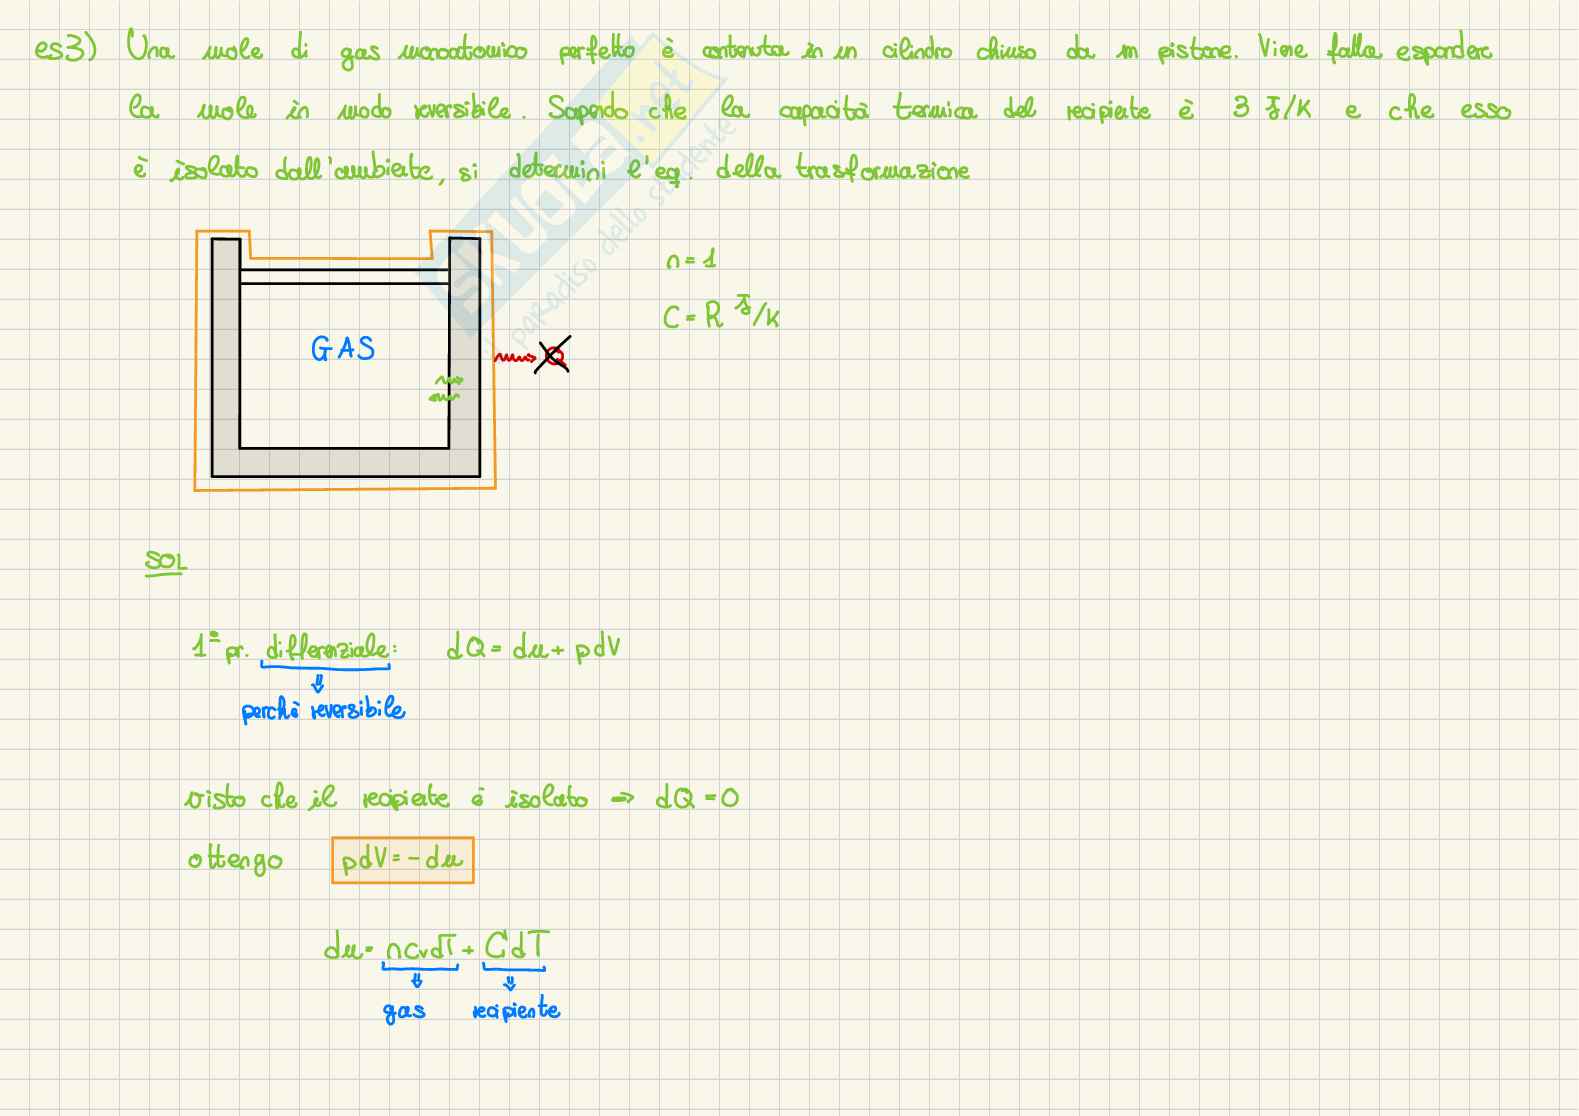 es3) Una mole di gas monoatomico perfetto è contenuta in un cilindro chiuso da un pistone. Viene fatta espandere
la mole in modo reversibile. Sapendo che la capacità termica del recipiente è 3 J/K e che esso
è isolato dall'ambiente, si determini l'eq. della trasformazione
SKUOLA.net
paradiso dello studente
n = 1
C = R J/K
GAS
Q
SOL
1° pr. differenziale: dQ = du + pdV
perchè reversibile
visto che il recipiente è isolato ⇒ dQ = 0
ottengo pdV = - du
du = ncvdT + CdT
gas recipiente